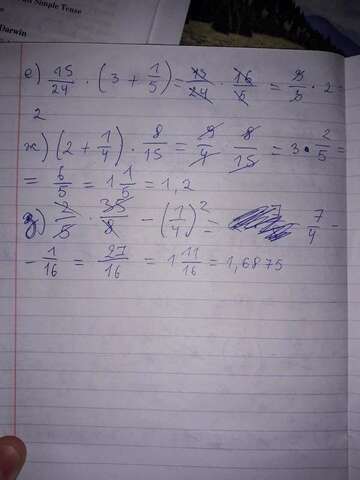 Simple Tense
е) 15/24 · (3 + 1/5) = 15/24 · 16/5 = 3/3 · 2 =
2
ж) (2 + 1/4) · 8/15 = 9/4 · 8/15 = 3 · 2/5 =
= 6/5 = 1 1/5 = 1,2
з) 2/5 · 35/8 - (1/4)² = 7/4 -
- 1/16 = 27/16 = 1 11/16 = 1,6875